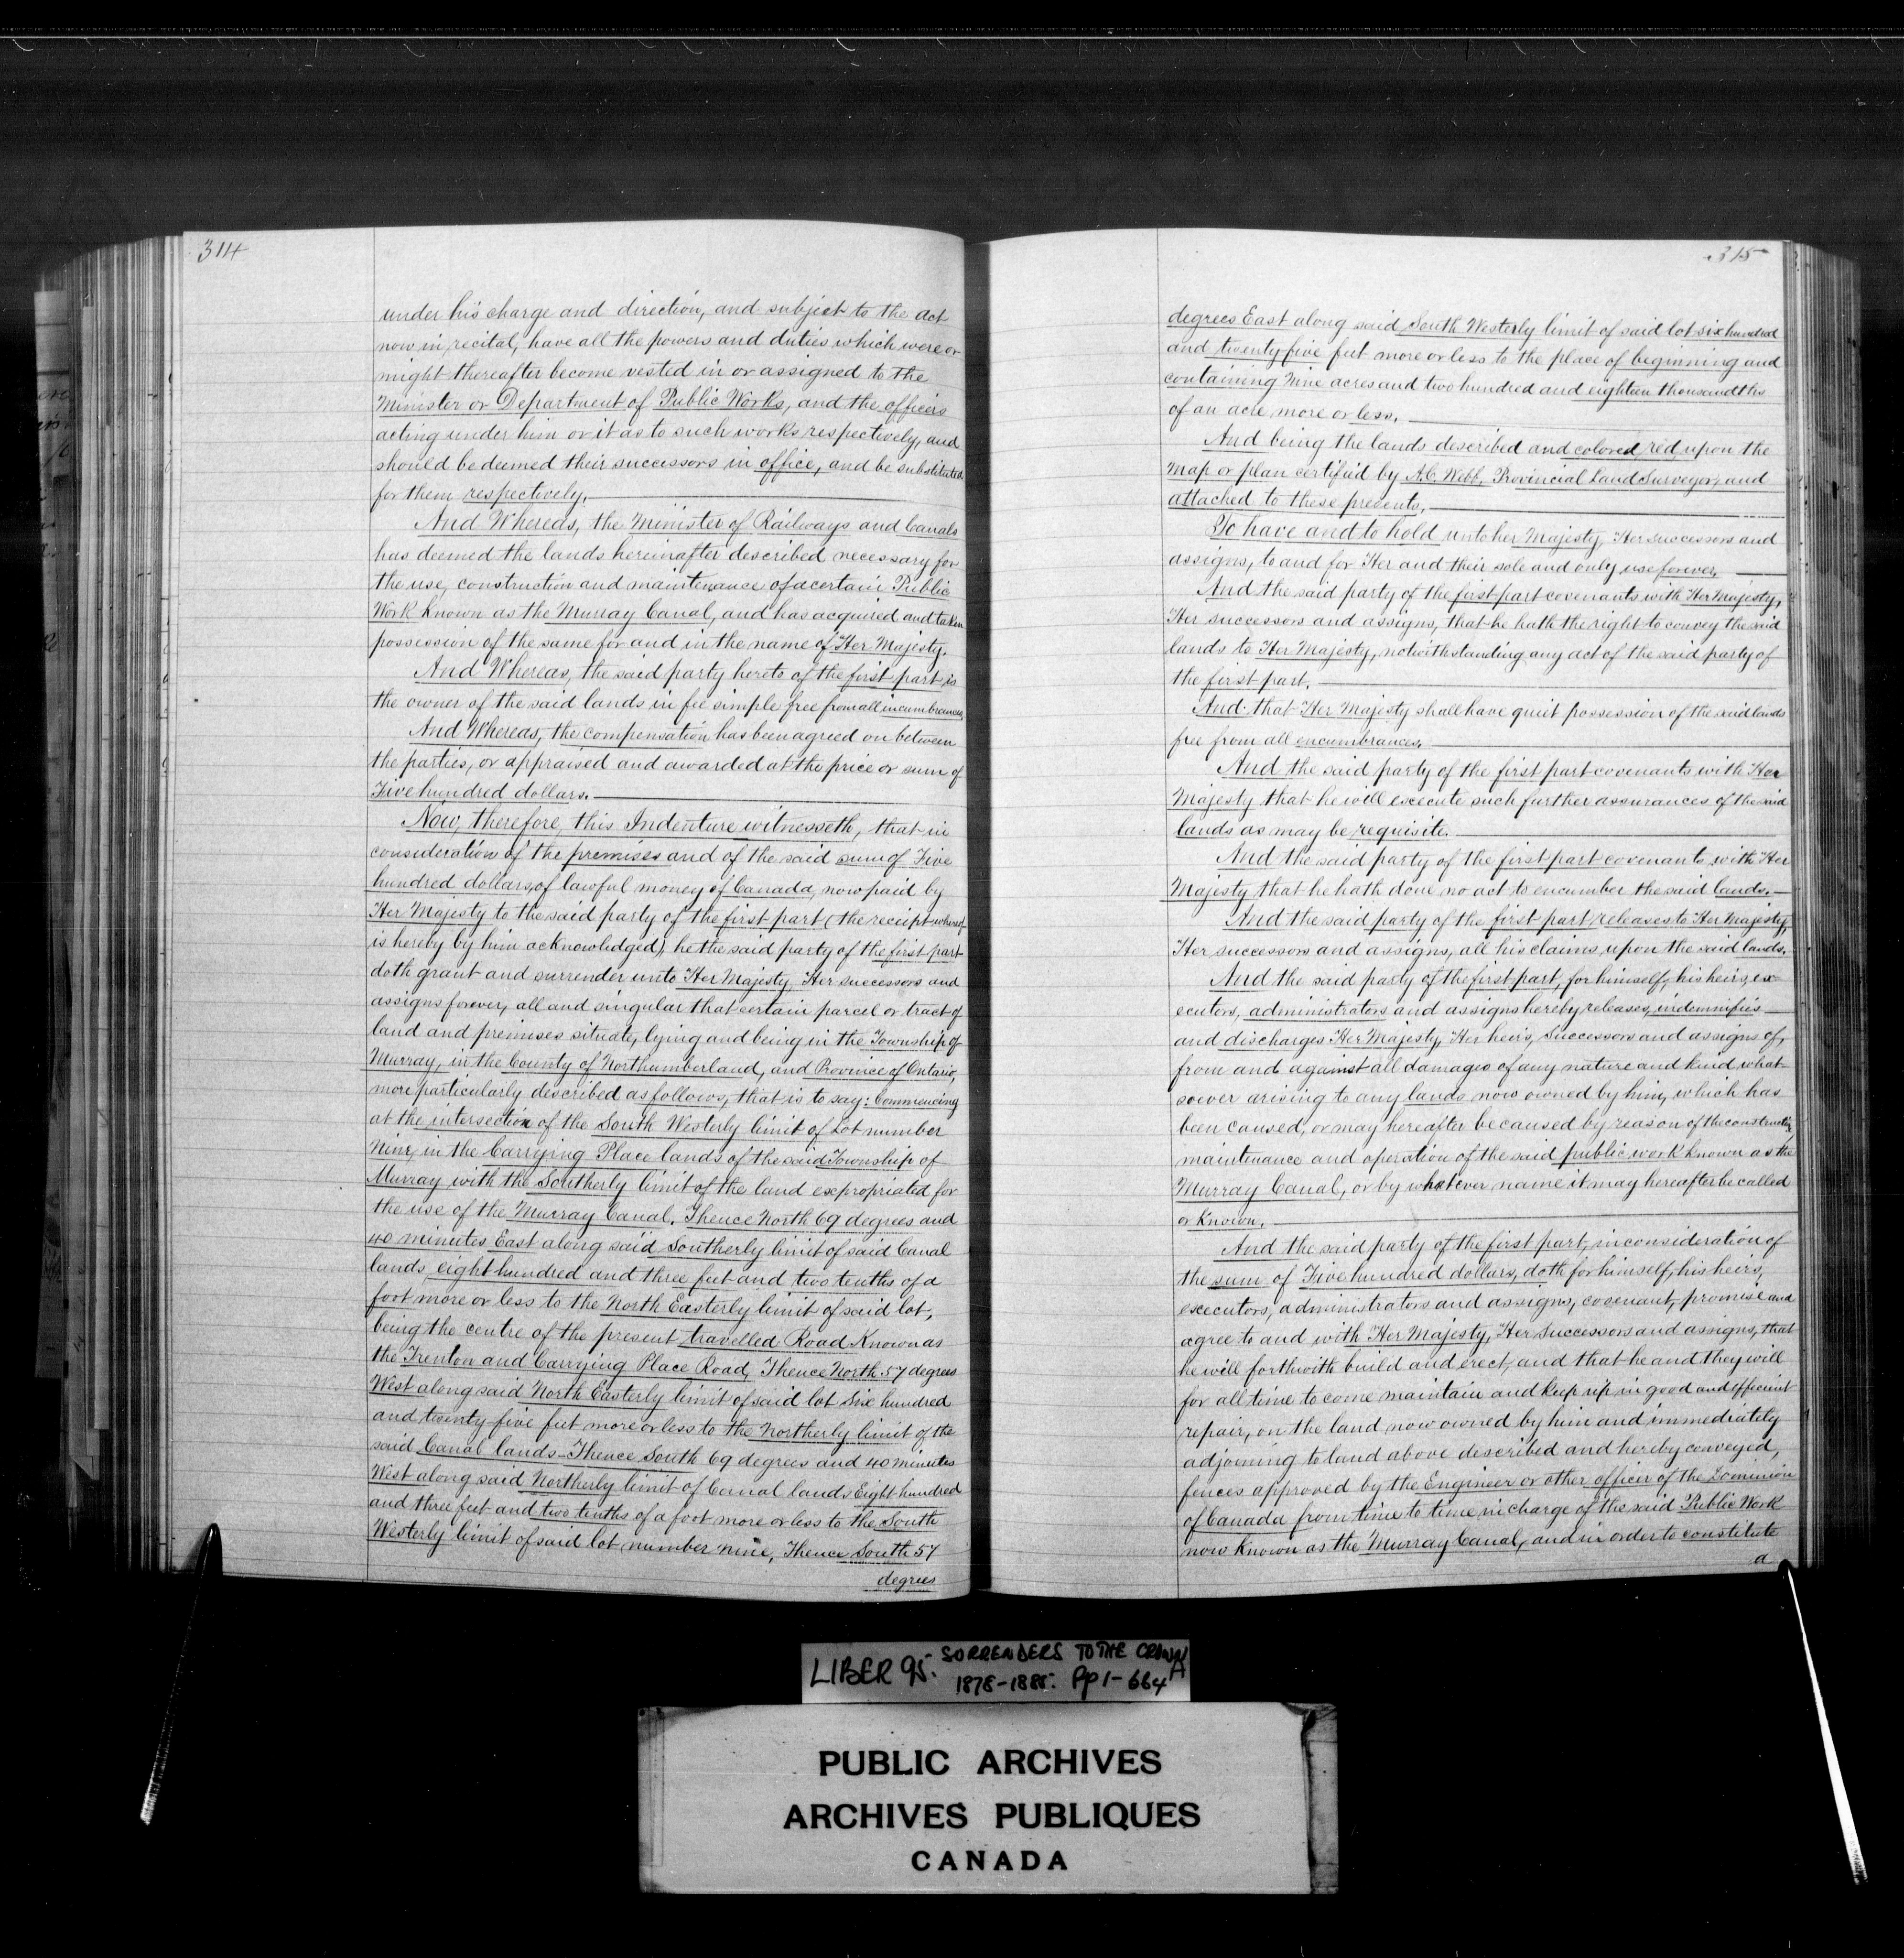 314
under his charge and direction, and subject to the act
now in recital, have all the powers and duties which were or
might thereafter become vested in or assigned to the
Minister or Department of Public Works, and the officers
acting under him or it as to such works respectively, and
should be deemed their successors in office, and be substituted
for them respectively.
And Whereas, the Minister of Railways and Canals
has deemed the lands hereinafter described necessary for
the use, construction and maintenance of a certain Public
Work known as the Murray Canal, and has acquired and taken
possession of the same for and in the name of Her Majesty.
And Whereas, the said party hereto of the first part is
the owner of the said lands in fee simple free from all incumbrances,
And Whereas, the compensation has been agreed on between
the parties, or appraised and awarded at the price or sum of
Five hundred dollars.
Now, therefore, this Indenture witnesseth, that in
consideration of the premises and of the said sum of Five
hundred dollars, of lawful money of Canada, now paid by
Her Majesty to the said party of the first part (the receipt whereof
is hereby by him acknowledged), he the said party of the first part
doth grant and surrender unto Her Majesty, Her successors and
assigns forever, all and singular that certain parcel or tract of
land and premises situate, lying and being in the Township of
Murray, in the County of Northumberland, and Province of Ontario,
more particularly described as follows, that is to say: Commencing
at the intersection of the South Westerly limit of Lot number
Nine, in the Carrying Place lands of the said Township of
Murray with the Southerly limit of the land expropriated for
the use of the Murray Canal. Thence North 69 degrees and
40 minutes East along said Southerly limit of said Canal
lands, eight hundred and three feet and two tenths of a
foot more or less to the North Easterly limit of said lot,
being the centre of the present travelled Road Known as
the Trenton and Carrying Place Road, Thence North 57 degrees
West along said North Easterly limit of said lot Six hundred
and twenty five feet more or less to the Northerly limit of the
said Canal lands - Thence South 69 degrees and 40 minutes
West along said Northerly limit of Canal lands Eight hundred
and three feet and two tenths of a foot more or less to the South
Westerly limit of said lot number nine, Thence South 57
degrees
315
degrees East along said South Westerly limit of said lot six hundred
and twenty five feet more or less to the place of beginning and
containing Nine acres and two hundred and eighteen thousandths
of an acre more or less.
And being the lands described and colored red, upon the
map or plan certified by A.C. Webb, Provincial Land Surveyor, and
attached to these presents.
To have and to hold unto her Majesty, Her successors and
assigns, to and for Her and their sole and only use forever.
And the said party of the first part covenants with Her Majesty,
Her successors and assigns, that he hath the right to convey the said
lands to Her Majesty, notwithstanding any act of the said party of
the first part.
And that Her Majesty shall have quiet possession of the said lands
free from all encumbrances.
And the said party of the first part covenants with Her
Majesty that he will execute such further assurances of the said
lands as may be requisite.
And the said party of the first part covenants with Her
Majesty that he hath done no act to encumber the said lands.
And the said party of the first part releases to Her Majesty,
Her successors and assigns, all his claims upon the said lands.
And the said party of the first part, for himself, his heirs, ex-
ecutors, administrators and assigns hereby releases, indemnifies
and discharges Her Majesty, Her heirs, Successors and assigns of,
from and against all damages of any nature and kind what-
soever arising to any lands now owned by him, which has
been caused, or may hereafter be caused by reason of the construction,
maintenance and operation of the said public work known as the
Murray Canal, or by whatever name it may hereafter be called
or known.
And the said party of the first part, in consideration of
the sum of Five hundred dollars, doth for himself, his heirs,
executors, administrators and assigns, covenant, promise and
agree to and with Her Majesty, Her Successors and assigns, that
he will forthwith build and erect, and that he and they will
for all time to come maintain and keep up in good and efficient
repair, on the land now owned by him and immediately
adjoining to land above described and hereby conveyed,
fences approved by the Engineer or other officer of the Dominion
of Canada from time to time in charge of the said Public Work
now known as the Murray Canal, and in order to constitute
a
LIBER 95. SURRENDERS TO THE CROWN
1878-1885. Pp 1-664 A
PUBLIC ARCHIVES
ARCHIVES PUBLIQUES
CANADA